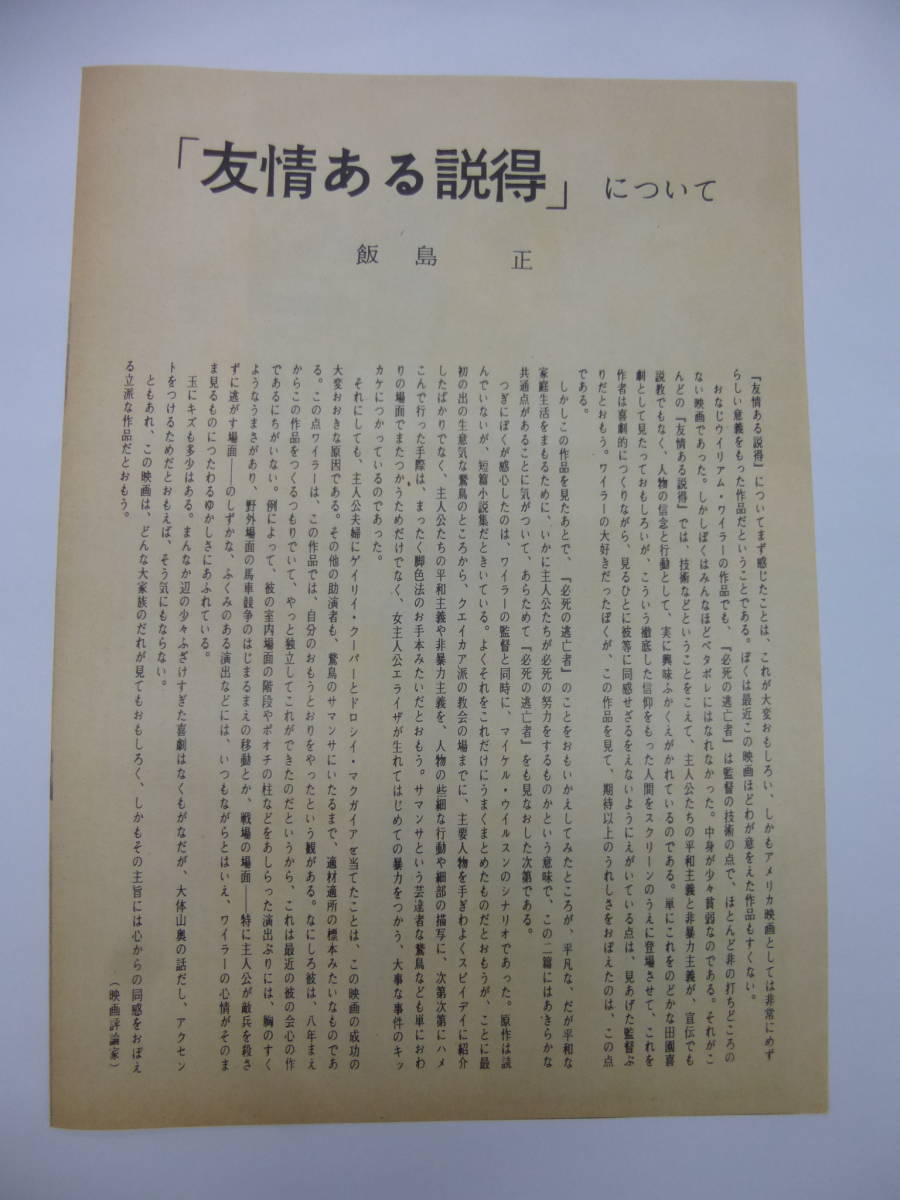 「友情ある説得」について
飯島 正
『友情ある説得』についてまず感じたことは、これが大変おもしろい、しかもアメリカ映画としては非常にめず
らしい意義をもった作品だということである。ぼくは最近この映画ほどわが意をえた作品もすくない。
おなじウイリアム・ワイラーの作品でも、『必死の逃亡者』は監督の技術の点で、ほとんど非の打ちどころの
ない映画であった。しかしぼくはみんなほどベタボレにはなれなかった。中身が少々貧弱なのである。それがこ
んどの『友情ある説得』では、技術などということをこえて、主人公たちの平和主義と非暴力主義が、宣伝でも
説教でもなく、人物の信念と行動として、実に興味ふかくえがかれているのである。単にこれをのどかな田園喜
劇として見たっておもしろいが、こういう徹底した信仰をもった人間をスクリーンのうえに登場させて、これを
作者は喜劇的につくりながら、見るひとに彼等に同感せざるをえないようにえがいている点は、見あげた監督ぶ
りだとおもう。ワイラーの大好きだったぼくが、この作品を見て、期待以上のうれしさをおぼえたのは、この点
である。
しかしこの作品を見たあとで、『必死の逃亡者』のことをおもいかえしてみたところが、平凡な、だが平和な
家庭生活をまもるために、いかに主人公たちが必死の努力をするものかという意味で、この二篇にはあきらかな
共通点があることに気がついて、あらためて『必死の逃亡者』をも見なおした次第である。
つぎにぼくが感心したのは、ワイラーの監督と同時に、マイケル・ウイルスンのシナリオであった。原作は読
んでいないが、短篇小説集だときいている。よくそれをこれだけにうまくまとめたものだとおもうが、ことに最
初の出の生意気な鵞鳥のところから、クエイカア派の教会の場までに、主要人物を手ぎわよくスピイデイに紹介
したばかりでなく、主人公たちの平和主義や非暴力主義を、人物の些細な行動や細部の描写に、次第次第にハメ
こんで行った手際は、まったく脚色法のお手本みたいだとおもう。サマンサという芸達者な鵞鳥なども単におわ
りの場面でまたつかうためだけでなく、女主人公エライザが生れてはじめての暴力をつかう、大事な事件のキッ
カケにつかっているのであった。
それにしても、主人公夫婦にゲイリイ・クーパーとドロシイ・マクガイアを当てたことは、この映画の成功の
大変おおきな原因である。その他の助演者も、鵞鳥のサマンサにいたるまで、適材適所の標本みたいなものであ
る。この点ワイラーは、この作品では、自分のおもうとおりをやったという観がある。なにしろ彼は、八年まえ
からこの作品をつくるつもりでいて、やっと独立してこれができたのだというから、これは最近の彼の会心の作
であるにちがいない。例によって、彼の室内場面の階段やポオチの柱などをあしらった演出ぶりには、胸のすく
ようなうまさがあり、野外場面の馬車競争のはじまるまえの移動とか、戦場の場面――特に主人公が敵兵を殺さ
ずに逃がす場面――のしずかな、ふくみのある演出などには、いつもながらとはいえ、ワイラーの心情がそのま
ま見るものにつたわるゆかしさにあふれている。
玉にキズも多少はある。まんなか辺の少々ふざけすぎた喜劇はなくもがなだが、大体山奥の話だし、アクセン
トをつけるためだとおもえば、そう気にもならない。
ともあれ、この映画は、どんな大家族のだれが見てもおもしろく、しかもその主旨には心からの同感をおぼえ
る立派な作品だとおもう。
（映画評論家）